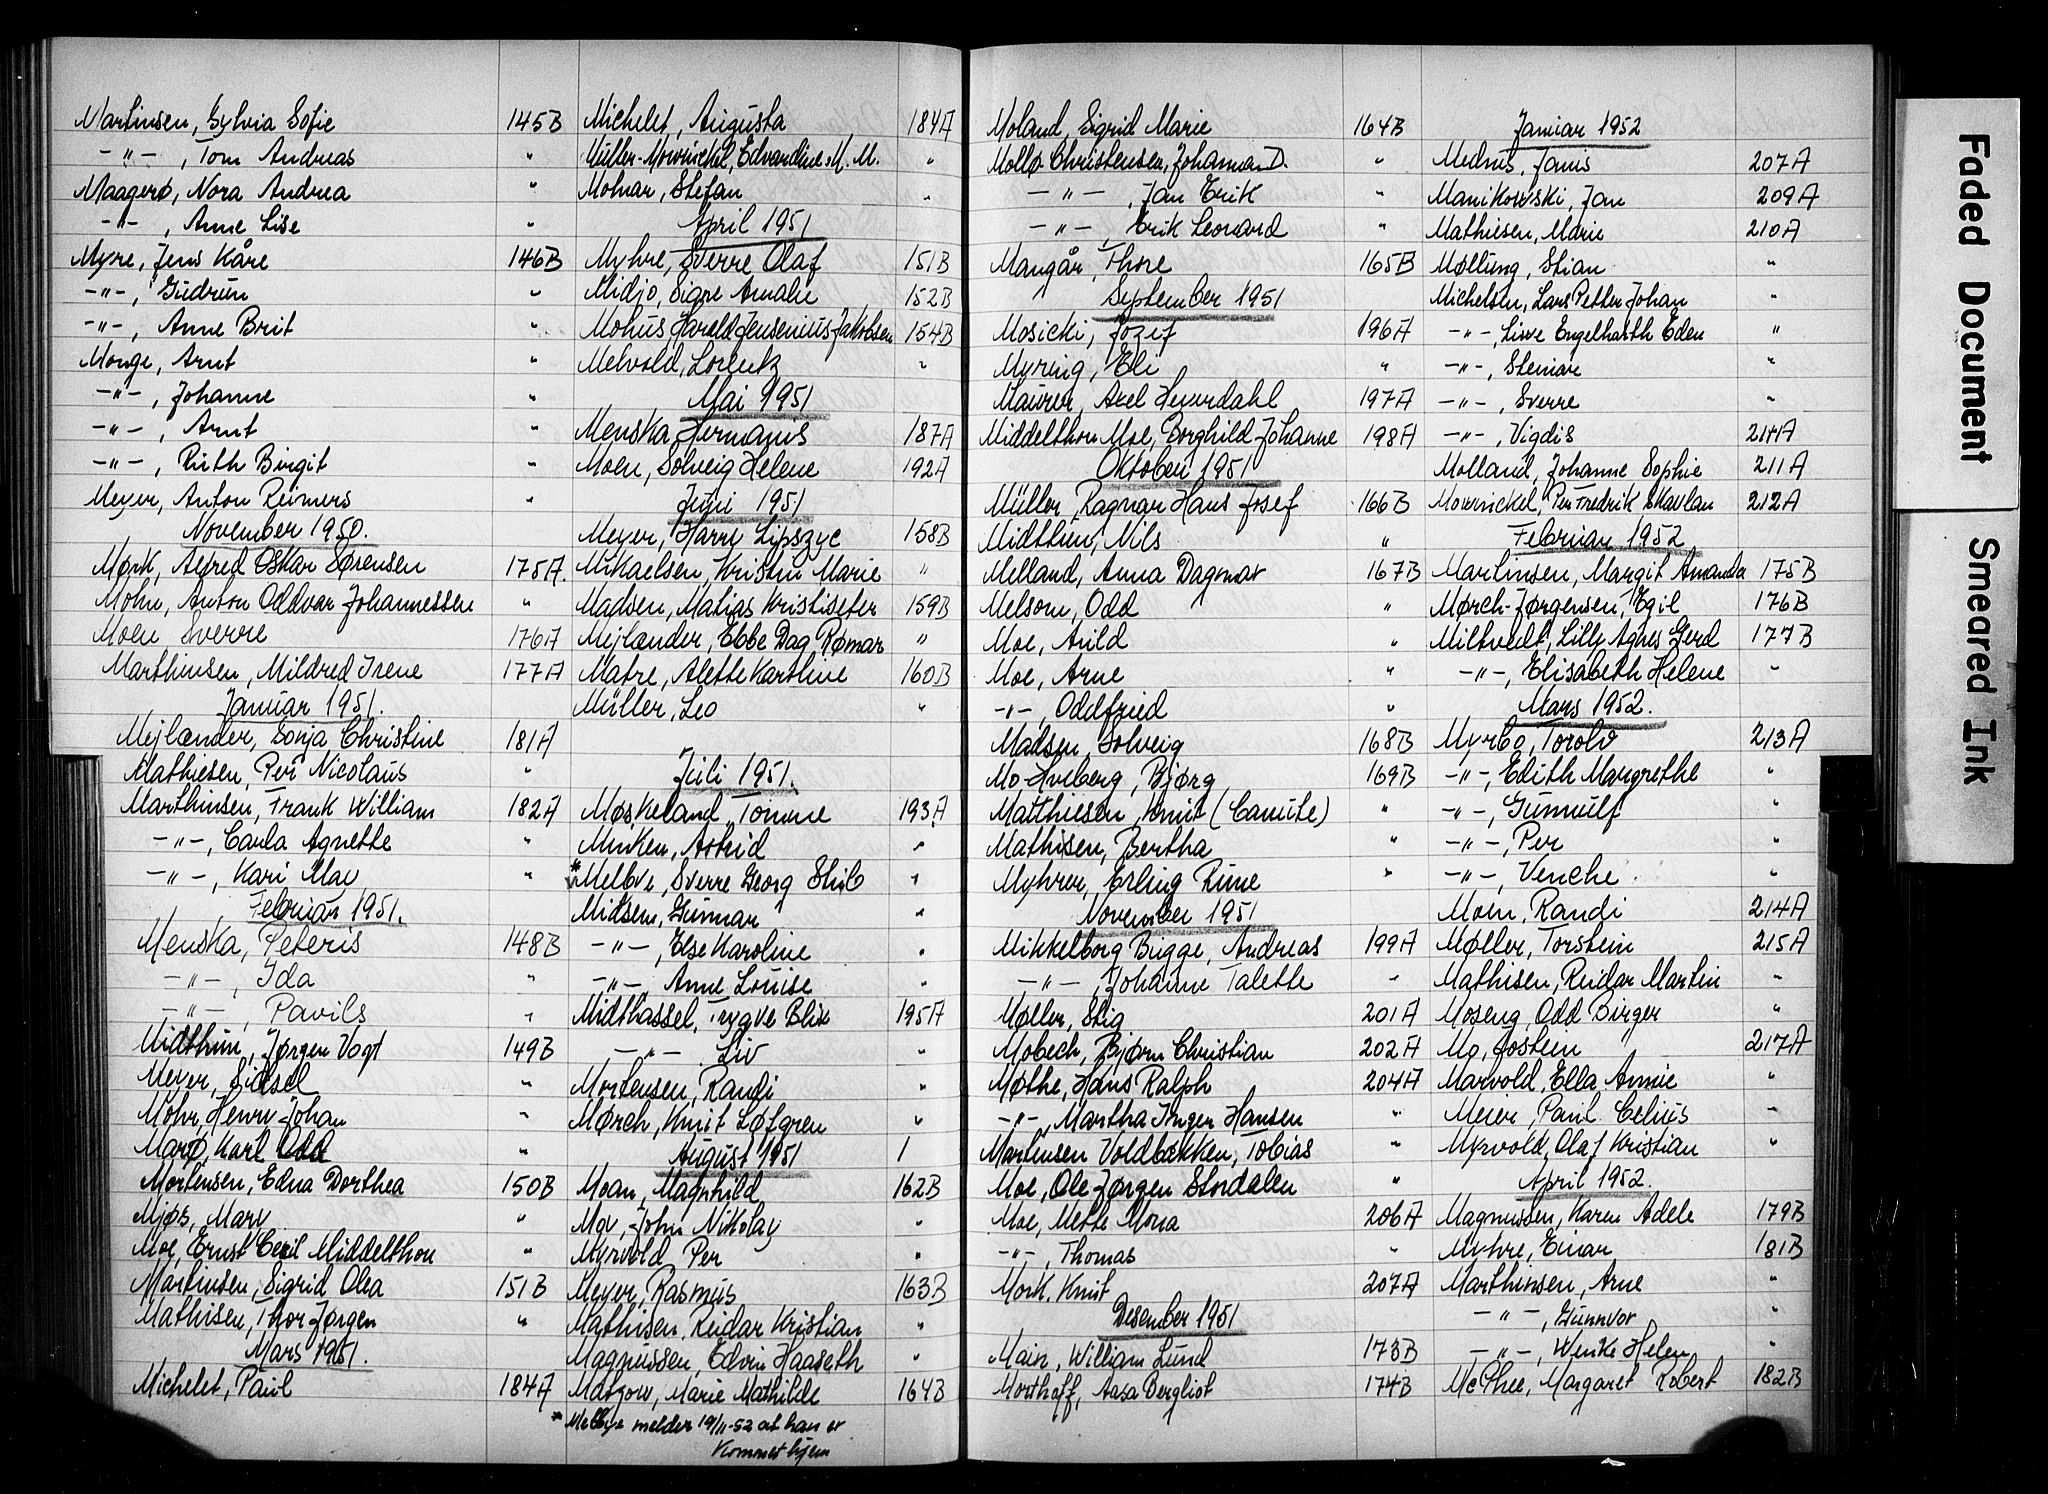 Martinsen, Sylvia Sofie 145B
-"-, Tom Andreas "
Maagerø, Nora Andrea "
-"-, Anne Lise "
Myre, Jens Kåre 146B
-"-, Gudrun "
-"-, Anne Brit "
Monge, Arnt "
-"-, Johanne "
-"-, Arnt "
-"-, Ruth Birgit "
Meyer, Anton Reimers "
November 1950.
Mørk, Alfred Oskar Sørensen 175A.
Mohn, Anton Oddvar Johannessen "
Moen Sverre 176A
Marthinsen, Mildred Irene 177A
Januar 1951.
Mejlænder, Sonja Christine 181A
Mathiesen, Per Nicolaus "
Marthinsen, Frank William 182A
-"-, Carla Agnette "
-"-, Kari Mae "
Februar 1951.
Menska, Peteris 148B
-"-, Ida "
-"-, Pavils "
Midthun, Jørgen Vogt 149B
Meyer, Sidsel "
Mohr, Henry Johan "
Marø, Karl Odd "
Mortensen, Edna Dorthea 150B
Mjøs, Mary "
Moe, Ernst Cecil Middelthon "
Martinsen, Sigrid Olea 151B
Mathisen, Thor Jørgen "
Mars 1951.
Michelet, Paul 184A
Michelet, Augusta 184A
Müller-Mowinckel, Edvardine M. M. "
Molnar, Stefan "
April 1951
Myhre, Sverre Olaf 151B
Midjo, Signe Amalie 152B
Mohus, Harald Jensenius Jakobsen 154B
Melvold, Lorentz "
Mai 1951
Menska, Hermanis 187A
Moen, Solveig Helene 192A
Juni 1951
Meyer, Harry Lipszyc 158B
Mikaelsen, Kristin Marie "
Madsen, Matias Kristiseter 159B
Mejlænder, Ebbe Dag Rømar "
Matre, Alette Karoline 160B
Müller, Leo "
Juli 1951.
Møskeland, Tomine 193A
Minken, Astrid "
*Melbye, Sverre Georg Stub "
Midsem, Gunnar "
-"-, Else Karoline "
-"-, Anne Louise "
Midthassel, Trygve Blix 195A
-"- Liv "
Mortensen, Randi "
Mørch, Knut Løfgren "
August 1951 1
Moan, Magnhild 162B
Moe, John Nikolay "
Myrvold Per "
Meyer, Rasmus 163B
Mathisen, Reidar Kristian "
Magnussen, Edvin Haaseth "
Matzow, Marie Mathilde 164B
* Melbye melder 19/11-52 at han er
kommet hjem
Moland, Sigrid Marie 164B
Mollø-Christensen, Johannan D. "
-"-, Jan Erik "
-"-, Erik Leonard "
Mangår, Thore 165B
September 1951
Mosicki, Jozef 196A
Myring, Eli "
Maurer, Axel Heyerdahl 197A
Middelthon Moe, Borghild Johanne 198A
Oktober 1951
Müller, Ragnar Hans Josef 166B
Midthun, Nils "
Melland, Anna Dagmar 167B
Melsom, Odd "
Moe, Arild "
Moe, Arne "
-"-, Oddfried "
Madsen, Solveig 168B
Mo-Hveberg, Bjørg 169B
Matthiesen, Knut (Canute) "
Mathisen, Bertha "
Myhrer, Erling Rune "
November 1951
Mikkelborg Bugge, Andreas 199A
-"-, Johanne Talette "
Møller, Stig 201A
Mobech, Bjørn Christian 202A
Møthe, Hans Ralph 204A
-"-, Martha Inger Hansen "
Martinsen Voldbakken, Tobias "
Moe, Ole Jørgen Stordalen "
Moe, Mette Mona 206A
-"-, Thomas "
Mork, Knut 207A
Desember 1951
Main, William Lund 173B
Morthoff, Aasa Bergliot 174B
Januar 1952
Mednis, Janis 207A
Manikowski, Jan 209A
Mathiesen, Marie 210A
Møllung, Stian "
Michelsen, Lars Petter Johan "
-"-, Liwe Engelharth Eden "
-"-, Steinar "
-"-, Sverre "
-"-, Vigdis 211A
Molland, Johanne Sophie 211A
Mowinckel, Per Fredrik Skavlan 212A
Februar 1952
Martinsen, Margit Amanda 175B
Mørch-Jørgensen, Egil 176B
Miltvedt, Lilly Agnes Gerd 177B
-"-, Elisabeth Helene "
Mars 1952.
Myrbo, Torolv 213A
-"-, Edith Margrethe "
-"-, Gunnulf "
-"-, Per "
-"-, Venche "
Moen, Randi 214A
Møller, Torstein 215A
Mathisen, Reidar Martin "
Moseng, Odd Birger "
Mo, Jostein 217A
Marvold, Ella Annie "
Meier, Paul Celius "
Myrvold, Olaf Kristian "
April 1952.
Magnussen, Karen Adele 179B
Myhre, Einar 181B
Marthinsen, Arne "
-"-, Gunnvor "
-"-, Wenke Helen "
McPhee, Margaret Robert 182B
Faded Document
Smeared Ink